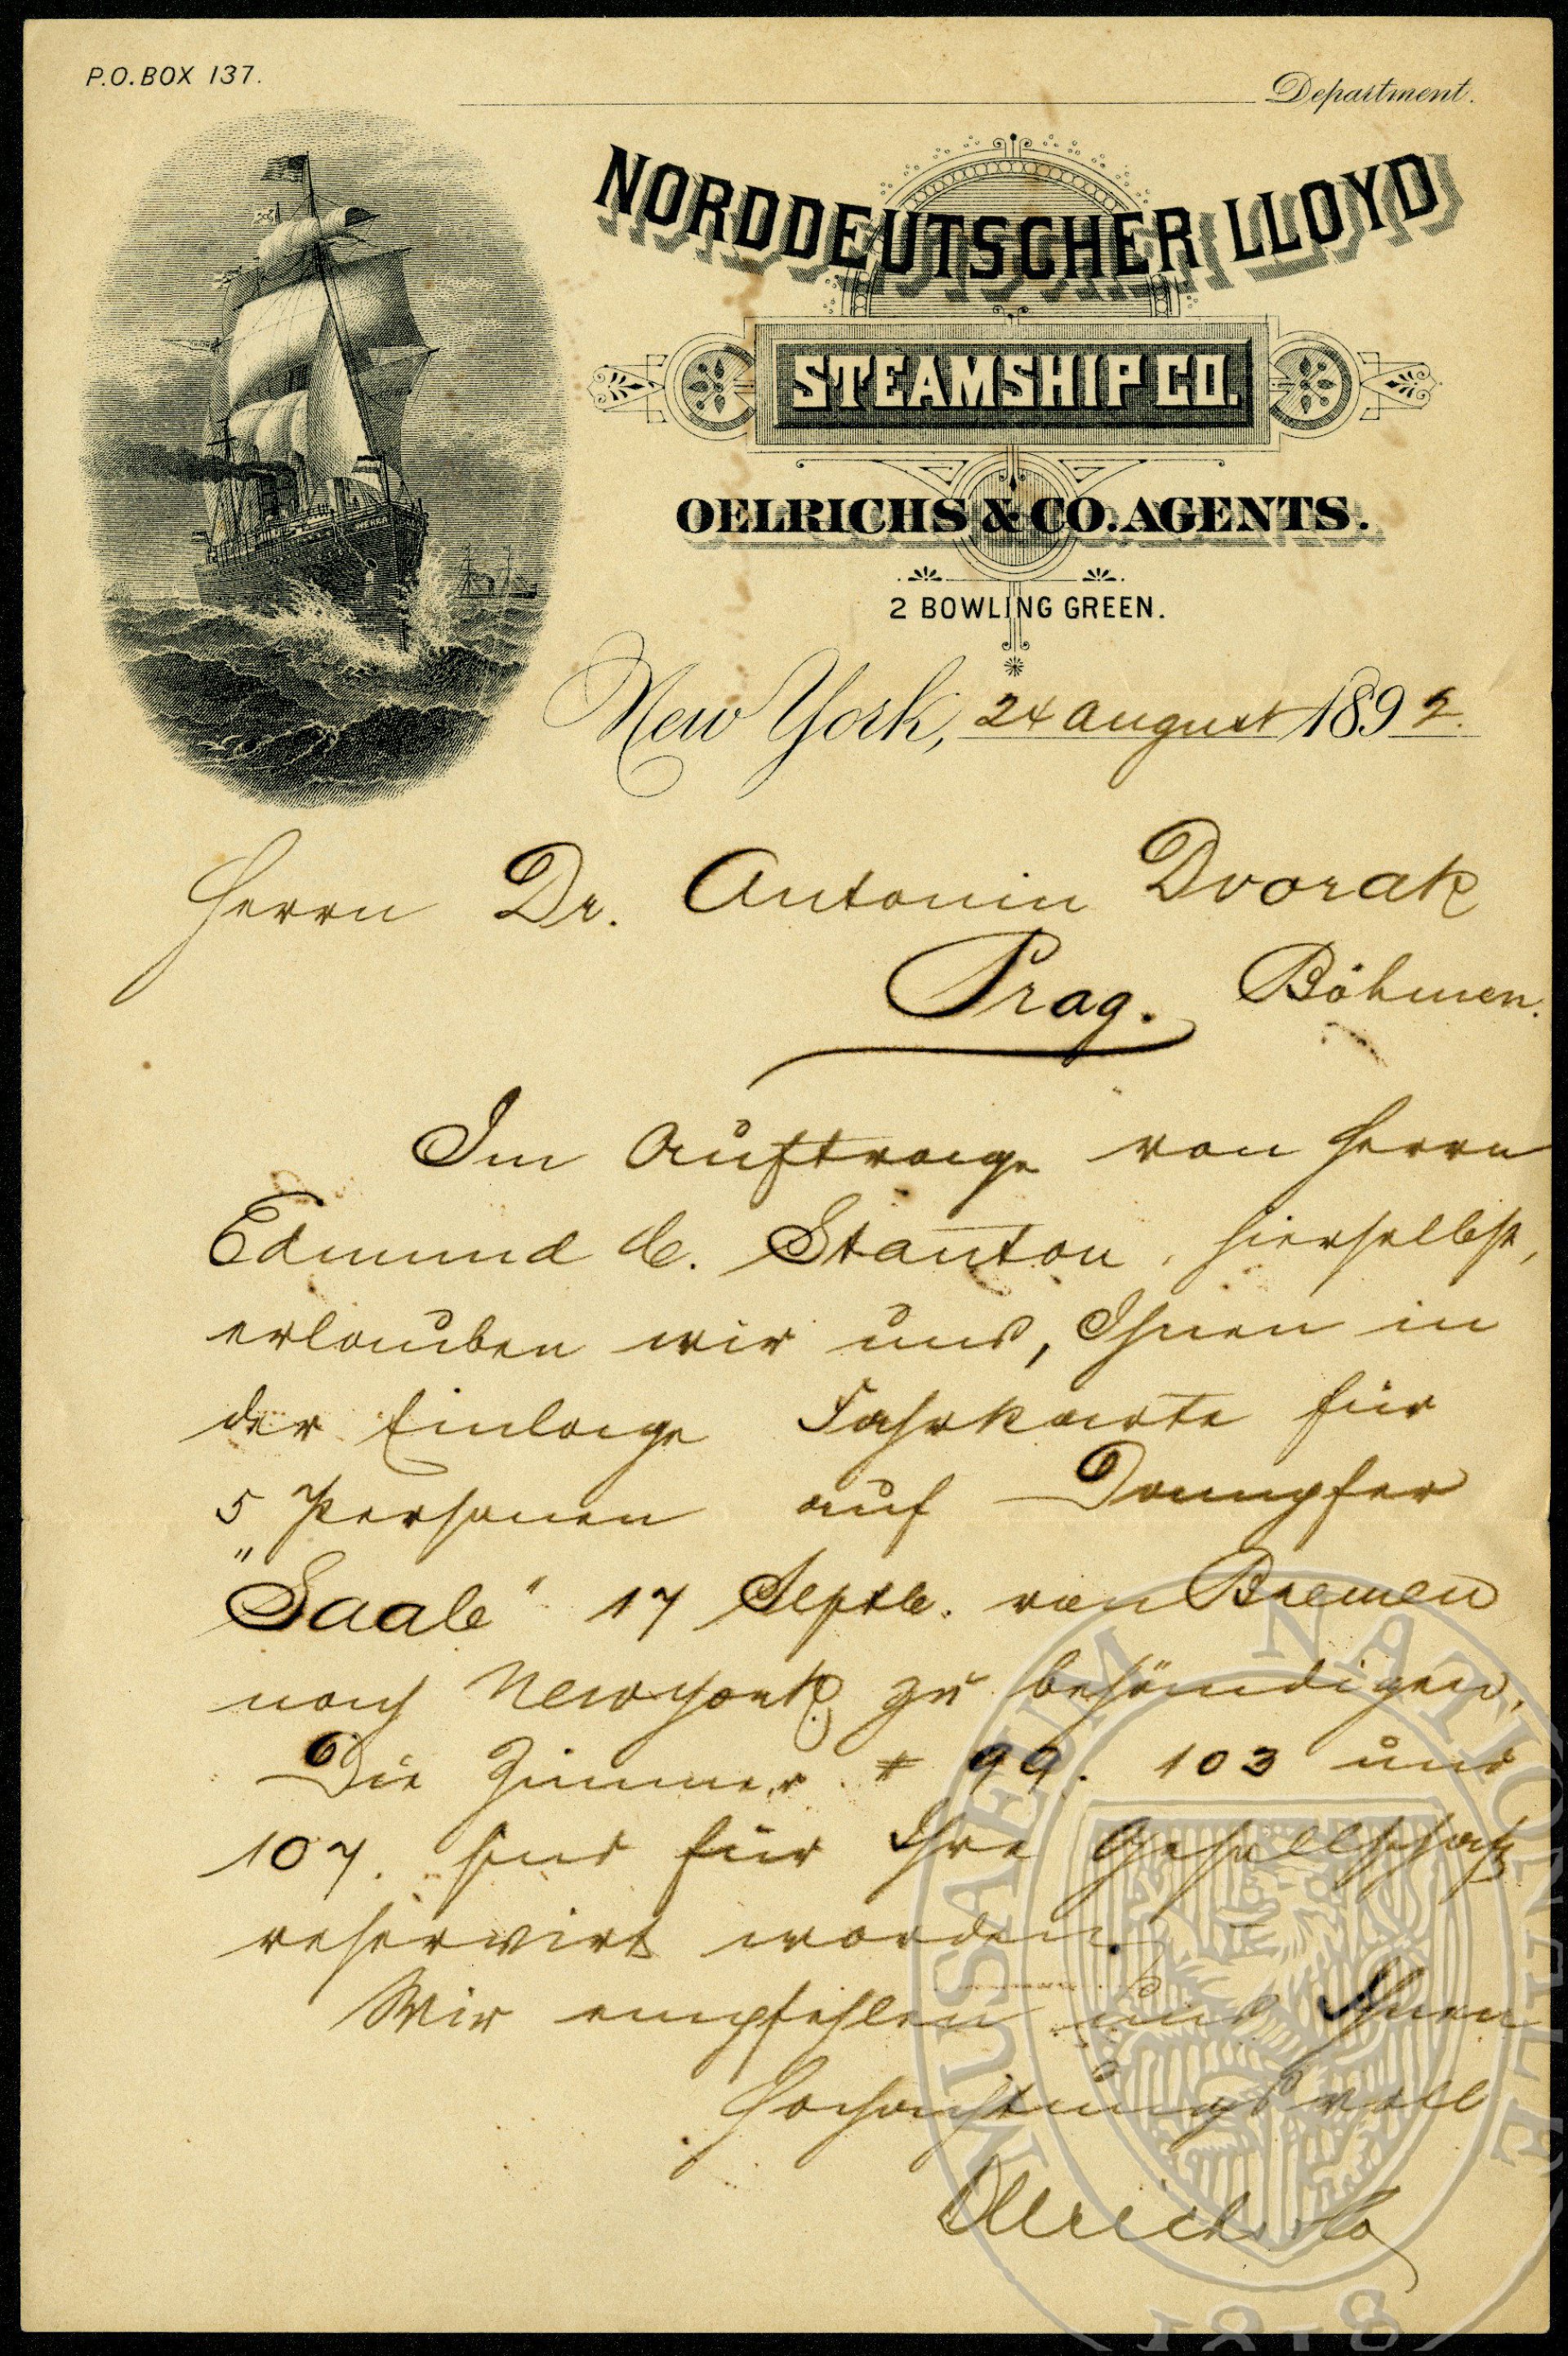 P.O.BOX 137.
Department.
NORDDEUTSCHER LLOYD
STEAMSHIP CO.
OELRICHS & CO. AGENTS.
2 BOWLING GREEN.
New York, 24 August 1892.
Herrn Dr. Antonin Dvorak
Prag. Böhmen.
Im Auftrage von Herrn
Edmund C. Stanton, hierselbst,
erlauben wir uns, Ihnen in
der Einlage Fahrkarte für
5 Personen auf Dampfer
"Saale" 17 Septb. von Bremen
nach Newyork zu behändigen.
Die Zimmer # 99. 103 und
107. sind für Ihre Gesellschaft
reservirt worden.
Wir empfehlen uns Ihnen
Hochachtungsvoll
Oelrichs & Co
MUSAEUM NATIONALE
1818